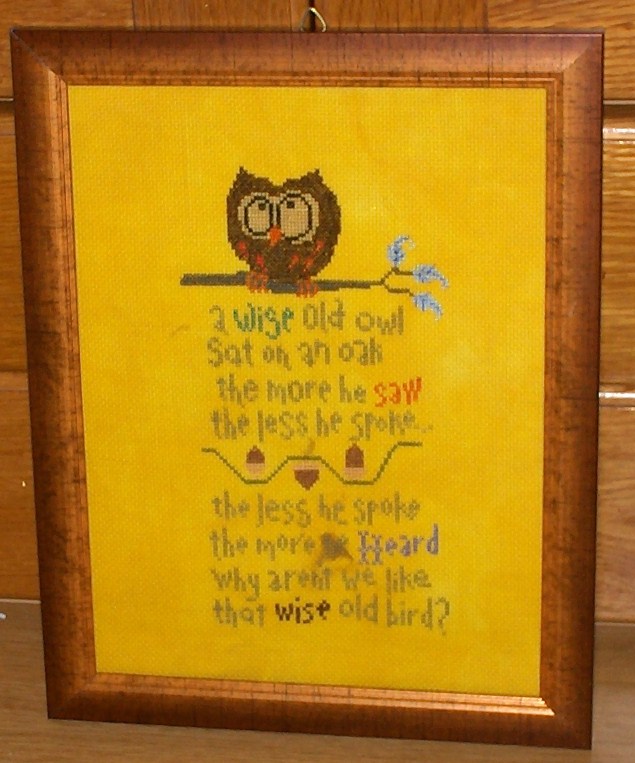 a wise old owl
Sat on an oak
the more he saw
the less he spoke..
the less he spoke
the more he Heard
why arent we like
that wise old bird?